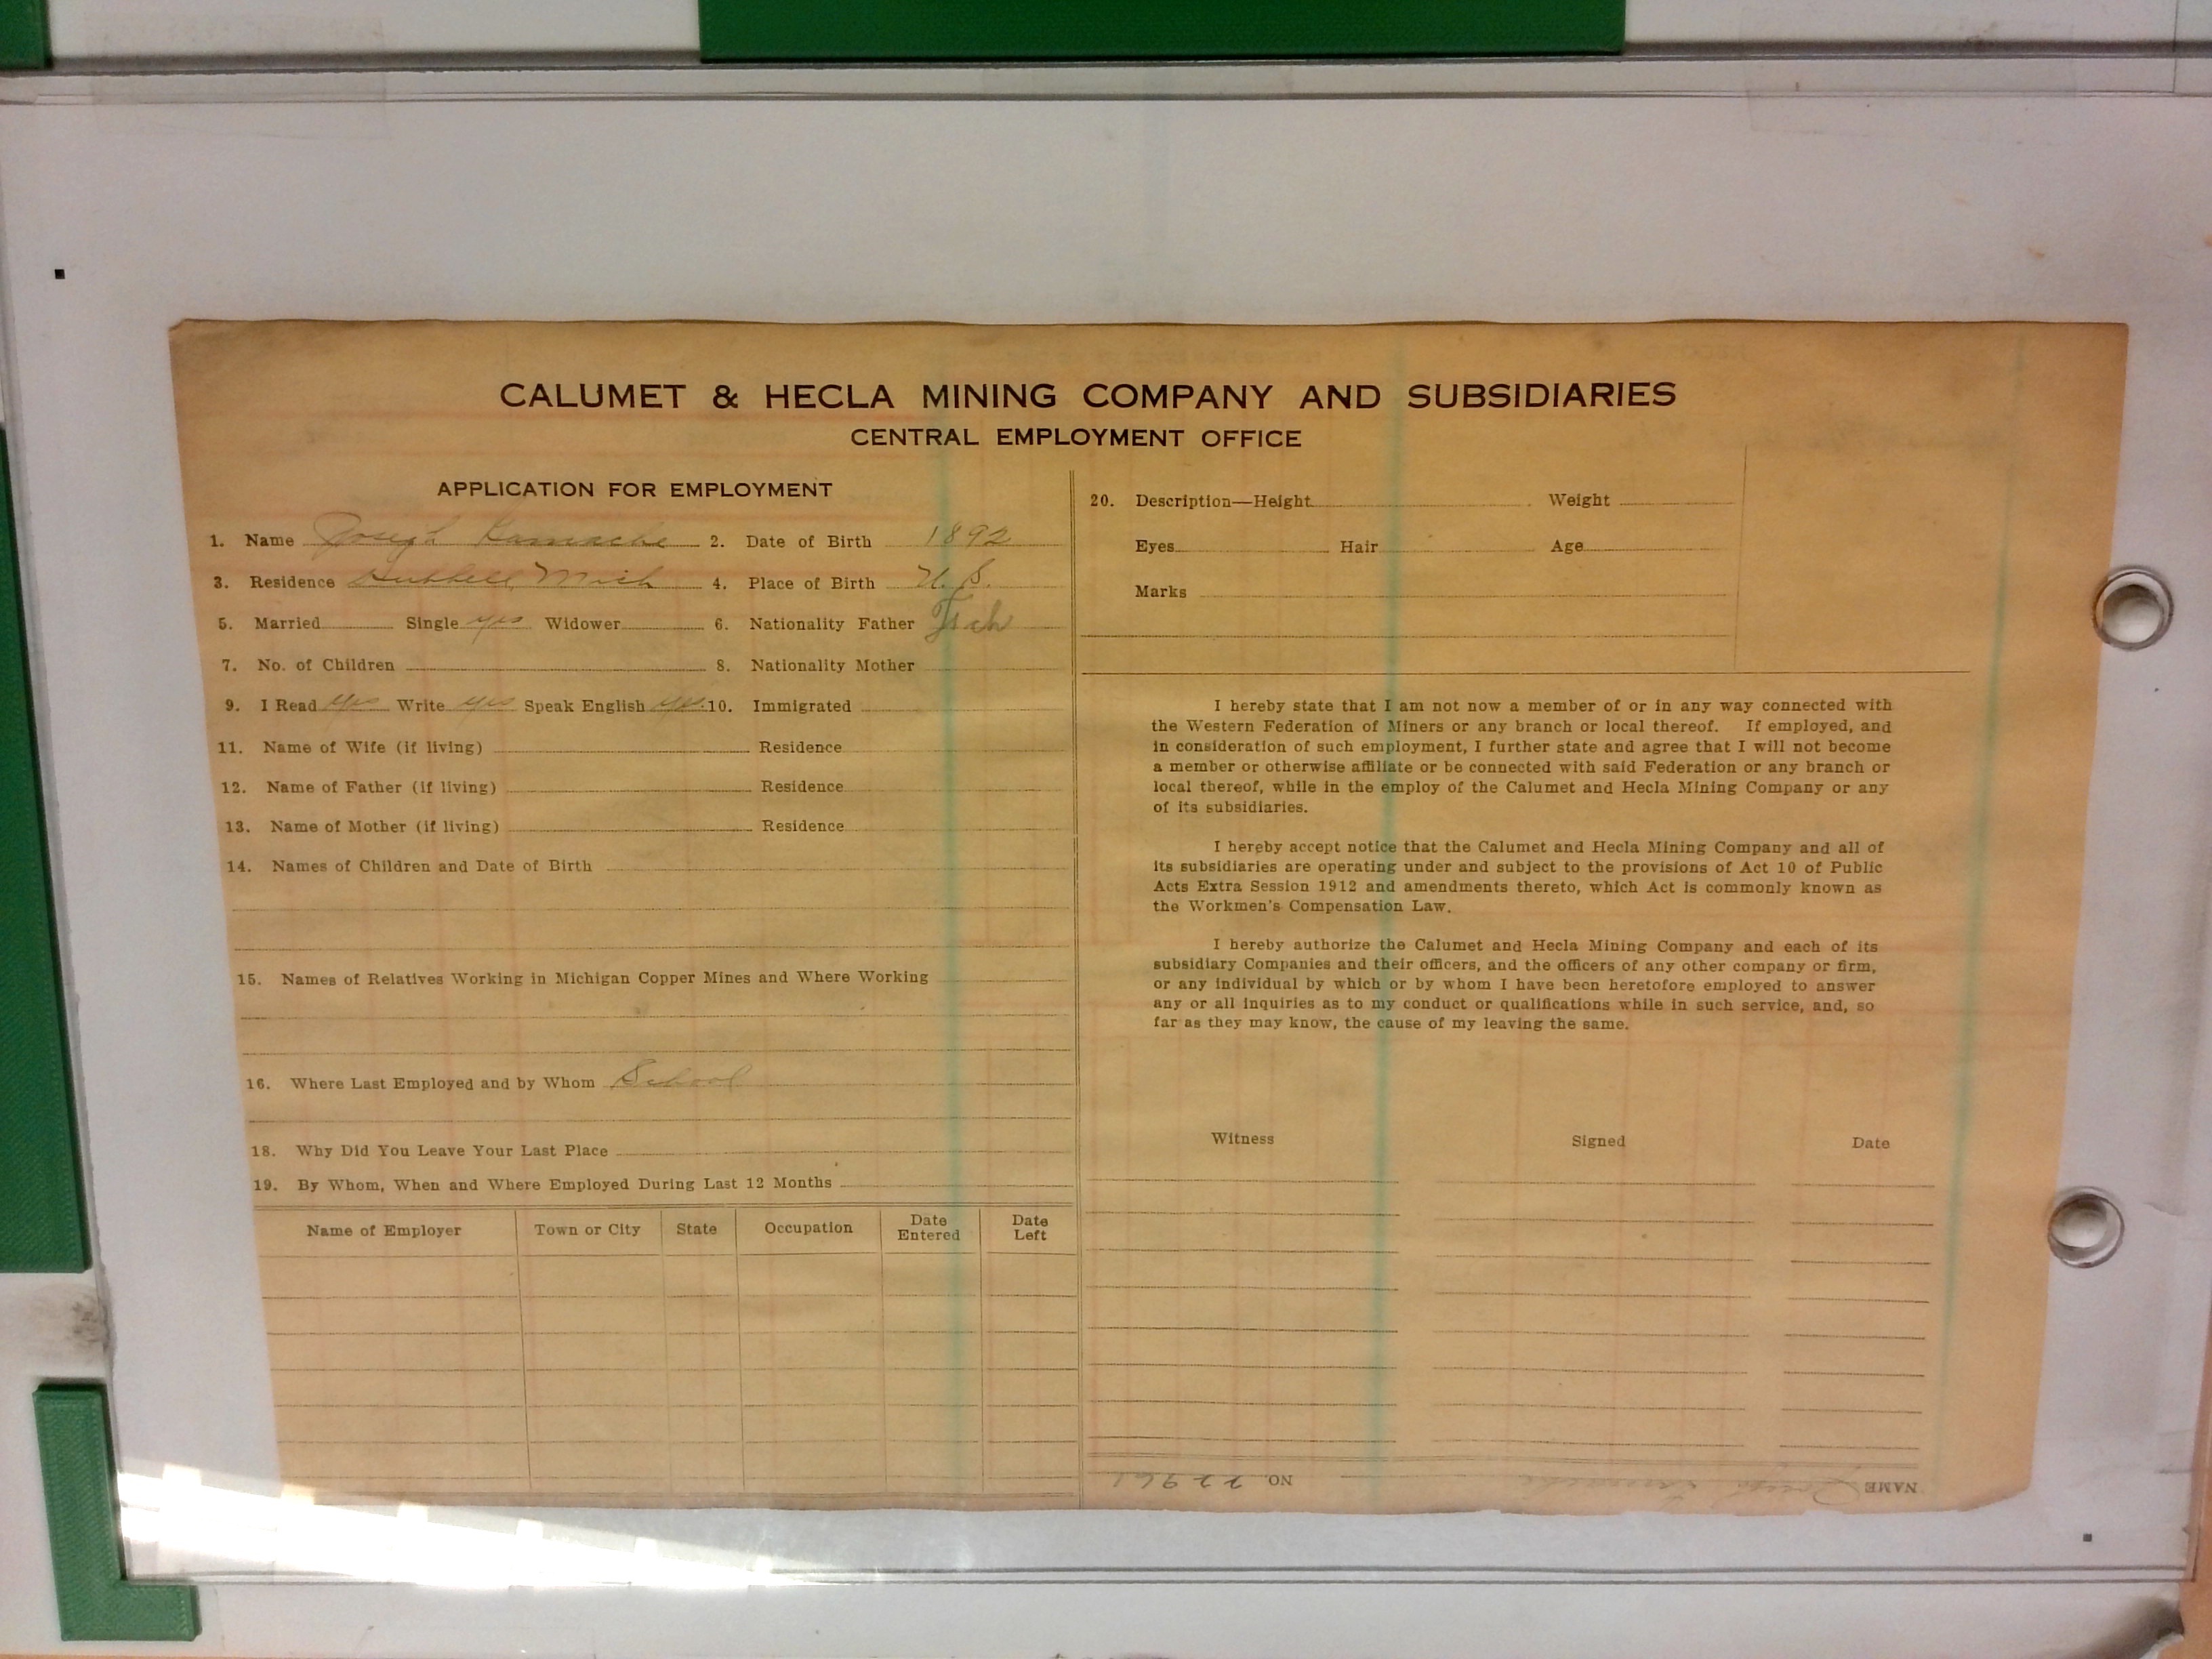 CALUMET & HECLA MINING COMPANY AND SUBSIDIARIES
CENTRAL EMPLOYMENT OFFICE
APPLICATION FOR EMPLOYMENT
1. Name Joseph 2. Date of Birth 1892
3. Residence Hubbell, Mich 4. Place of Birth U. S.
5. Married Single yes Widower 6. Nationality Father
7. No. of Children 8. Nationality Mother
9. I Read yes Write yes Speak English yes 10. Immigrated
11. Name of Wife (if living) Residence
12. Name of Father (if living) Residence
13. Name of Mother (if living) Residence
14. Names of Children and Date of Birth
15. Names of Relatives Working in Michigan Copper Mines and Where Working
16. Where Last Employed and by Whom School
18. Why Did You Leave Your Last Place
19. By Whom, When and Where Employed During Last 12 Months
Name of Employer Town or City State Occupation Date Entered Date Left
20. Description—Height Weight
Eyes Hair Age
Marks
I hereby state that I am not now a member of or in any way connected with
the Western Federation of Miners or any branch or local thereof. If employed, and
in consideration of such employment, I further state and agree that I will not become
a member or otherwise affiliate or be connected with said Federation or any branch or
local thereof, while in the employ of the Calumet and Hecla Mining Company or any
of its subsidiaries.
I hereby accept notice that the Calumet and Hecla Mining Company and all of
its subsidiaries are operating under and subject to the provisions of Act 10 of Public
Acts Extra Session 1912 and amendments thereto, which Act is commonly known as
the Workmen's Compensation Law.
I hereby authorize the Calumet and Hecla Mining Company and each of its
subsidiary Companies and their officers, and the officers of any other company or firm,
or any individual by which or by whom I have been heretofore employed to answer
any or all inquiries as to my conduct or qualifications while in such service, and, so
far as they may know, the cause of my leaving the same.
Witness Signed Date
NAME Joseph NO. 22961